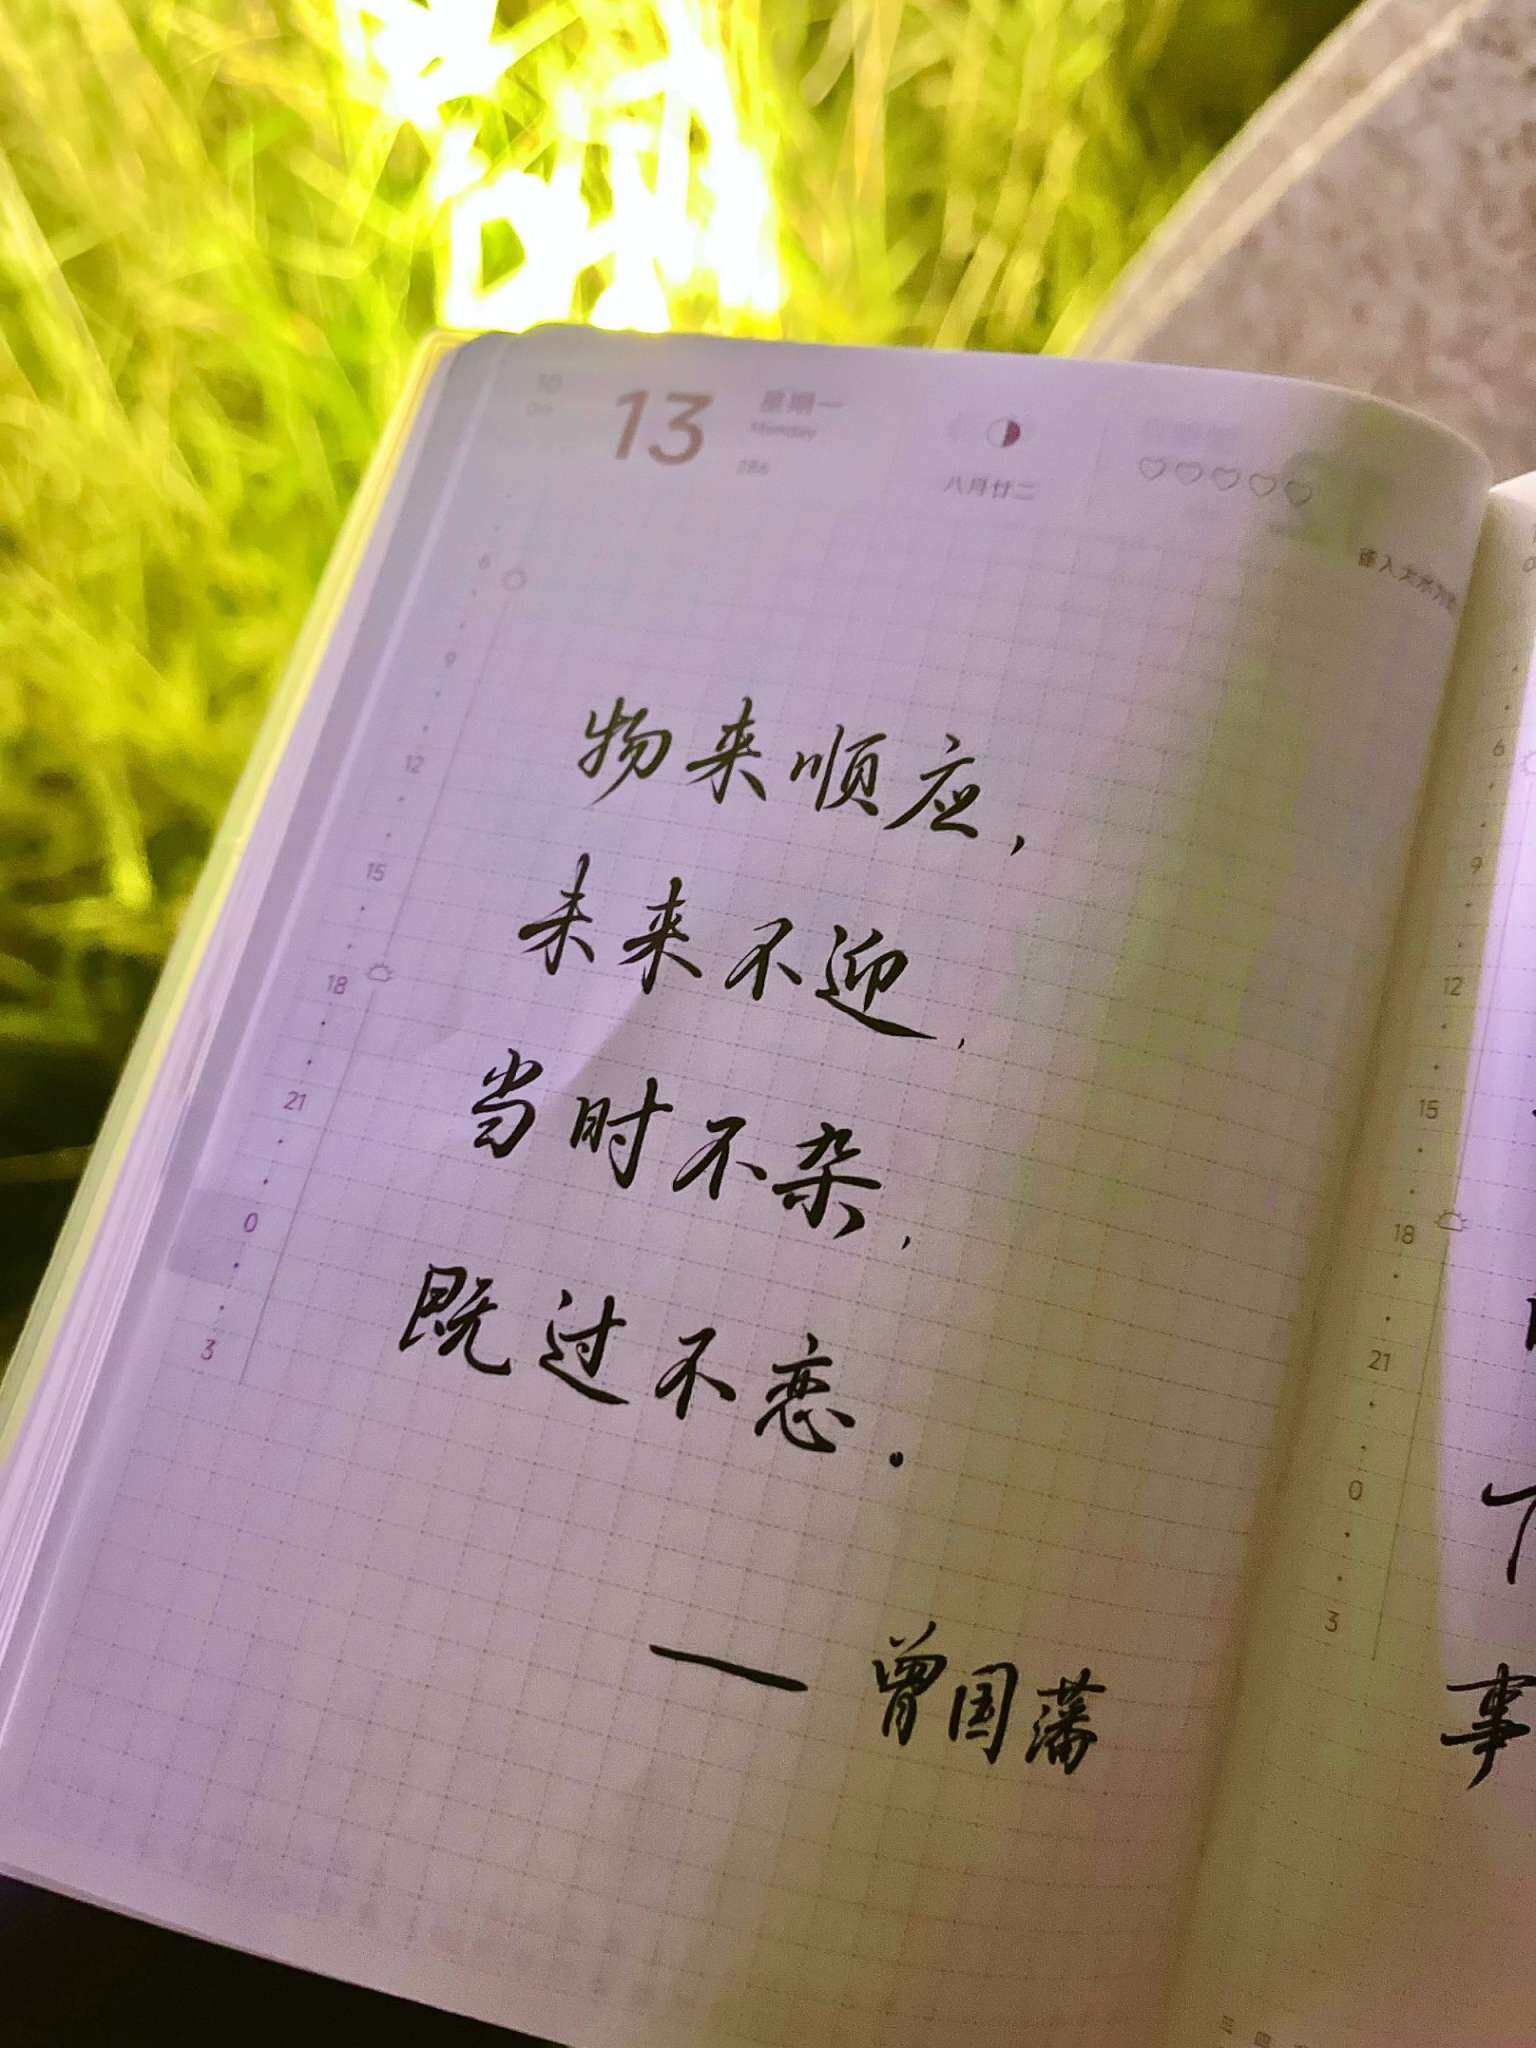 10
13
星期一
Monday
286
八月廿二
6
9
12
15
18
21
0
3
物来顺应，
未来不迎，
当时不杂，
既过不恋。
——曾国藩
6
9
12
15
18
21
0
3
事